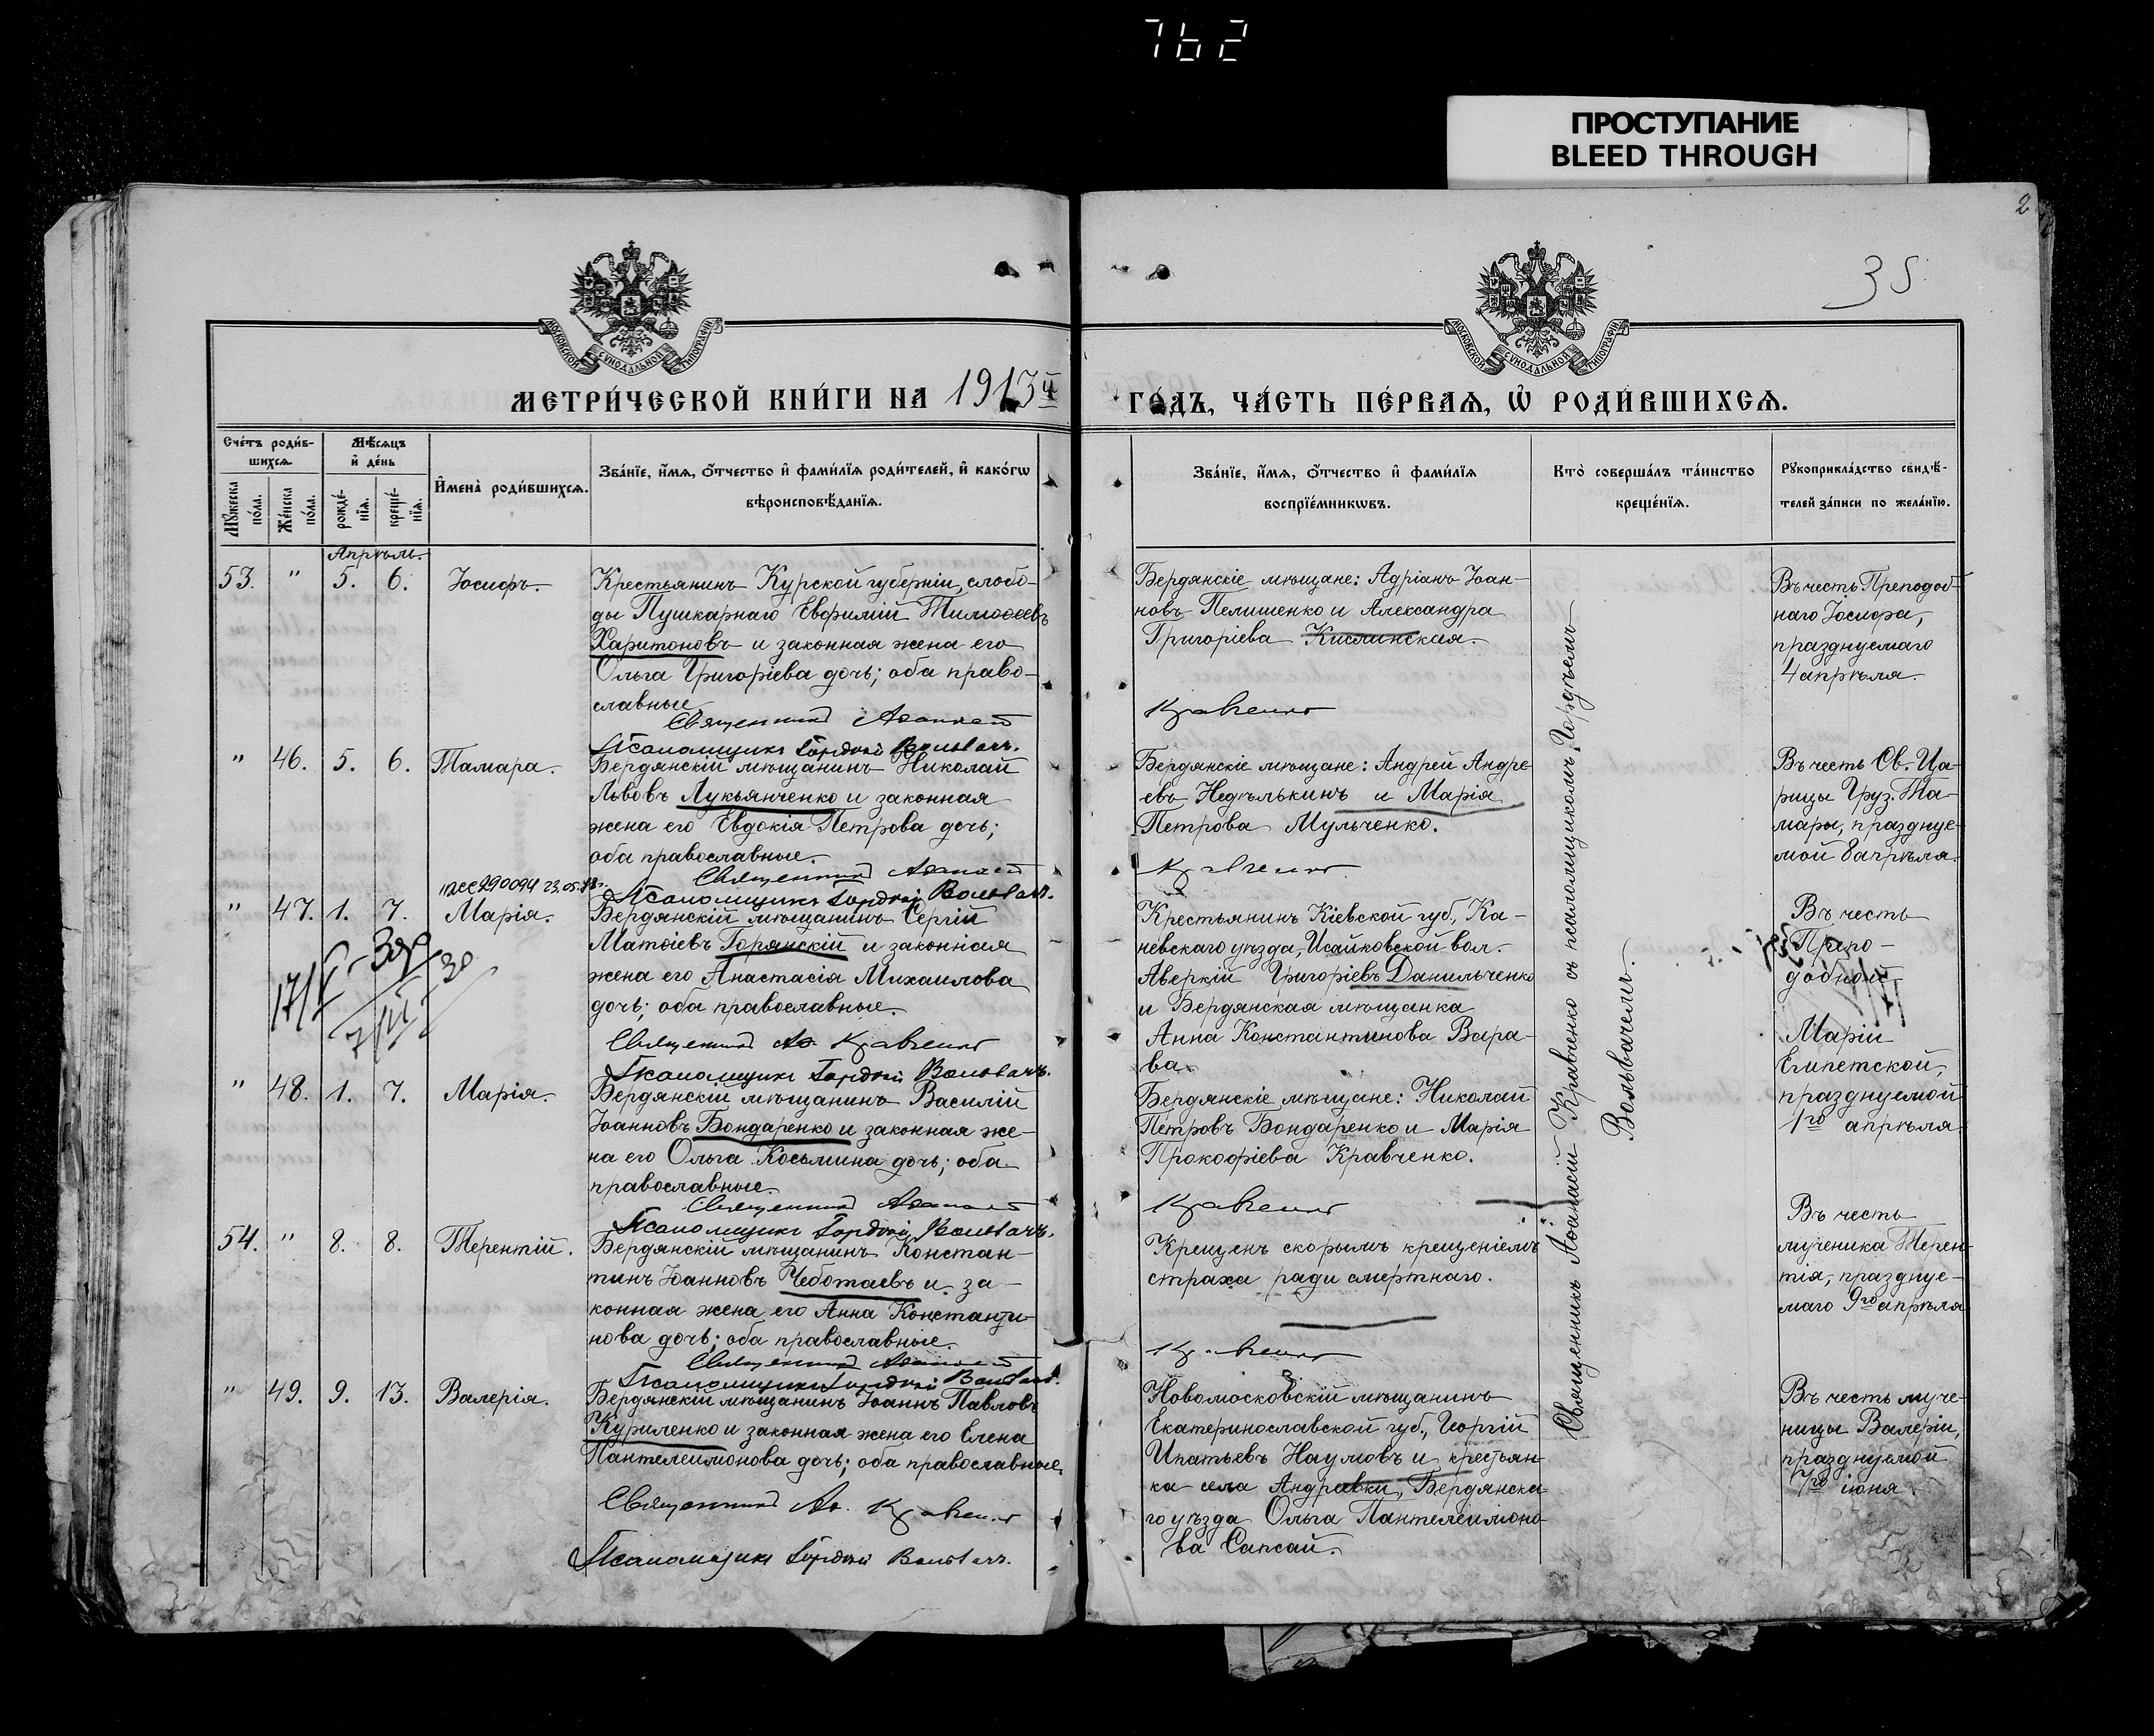 762
ПРОСТУПАНИЕ
BLEED THROUGH
2
35
МОСКОВСКОЙ СѴНОДАЛЬНОЙ ТИПОГРАФІИ
МОСКОВСКОЙ СѴНОДАЛЬНОЙ ТИПОГРАФІИ
МЕТРИ́ЧЕСКОЙ КНИ́ГИ НА 1913й
ГО́ДЪ, ЧА́СТЬ ПЕ́РВАѦ, Ѡ҆ РОДИ́ВШИХСѦ.
Сче́тъ роди́в-
шихсѧ
Мѣ́сѧцъ
и҆ де́нь
Мꙋ́жеска по́ла.
Же́нска по́ла.
рожде́-нїѧ.
креще́-нїѧ.
И҆мена̀ роди́вшихсѧ.
Зва́нїе, и҆́мѧ, ѻ҆́тчество и҆ фами́лїѧ роди́телей, и҆ како́гѡ
вѣроисповѣ́данїѧ.
Зва́нїе, и҆́мѧ, ѻ҆́тчество и҆ фами́лїѧ
воспрїе́мникѡвъ.
Кто̀ соверша́лъ та́инство
креще́нїѧ.
Рꙋкоприкла́дство свидѣ́-
телей за́писи по жела́нїю.
Апрѣль.
53. " 5. 6. Іосифъ.
Крестьянинъ Курской губерніи, слобо-
ды Пушкарнаго Евфимій Тимоѳеевъ
Харитоновъ и законная жена его
Ольга Григоріева дочь; оба право-
славные
Священникъ Аѳанасій
Псаломщикъ Гордѣй Вольвачъ.
Бердянскіе мѣщане: Адріанъ Іоан-
новъ Пелишенко и Александра
Григоріева Кислинская.
Кравченко
Въ честь Преподоб-
наго Іосифа,
празднуемаго
4 апрѣля.
" 46. 5. 6. Тамара.
Бердянскій мѣщанинъ Николай
Львовъ Лукьянченко и законная
жена его Евдокія Петрова дочь;
оба православные.
Священникъ Аѳанасій
Псаломщикъ Гордѣй Вольвачъ.
Бердянскіе мѣщане: Андрей Андре-
евъ Недѣлькинъ и Марія
Петрова Мульченко.
Кравченко
Въ честь Св. Ца-
рицы Груз. Та-
мары, празднуе-
мой 8 апрѣля.
290094 23.05.
" 47. 1. 7. Марія.
17/V
30
Бердянскій мѣщанинъ Сергій
Матѳіевъ Горянскій и законная
жена его Анастасія Михаилова
дочь; оба православные.
Священникъ Аѳ. Кравченко
Псаломщикъ Гордѣй Вольвачъ.
Крестьянинъ Кіевской губ., Ка-
невскаго уѣзда, Исайковской вол.
Аверкій Григоріевъ Данильченко
и Бердянская мѣщанка
Анна Константинова Вара-
ва.
Въ честь
Препо-
добной
Маріи
Египетской,
празднуемой
1го апрѣля
" 48. 1. 7. Марія.
Бердянскій мѣщанинъ Василій
Іоанновъ Бондаренко и законная же-
на его Ольга Косьмина дочь; оба
православные.
Священникъ Аѳанасій
Псаломщикъ Гордѣй Вольвачъ.
Бердянскіе мѣщане: Николай
Петровъ Бондаренко и Марія
Прокофіева Кравченко.
Кравченко
54. " 8. 8. Терентій.
Бердянскій мѣщанинъ Констан-
тинъ Іоанновъ Чеботаевъ и за-
конная жена его Анна Константи-
нова дочь; оба православные.
Священникъ Аѳанасій
Псаломщикъ Гордѣй Вольвачъ.
Крещенъ скорымъ крещеніемъ
страха ради смертнаго.
Кравченко
Въ честь
мученика Терен-
тія, празднуе-
маго 9го апрѣля
" 49. 9. 13. Валерія.
Бердянскій мѣщанинъ Іоаннъ Павловъ
Куриленко и законная жена его Елена
Пантелеимонова дочь; оба православные.
Священникъ Аѳ. Кравченко
Псаломщикъ Гордѣй Вольвачъ.
Новомосковскій мѣщанинъ
Екатеринославской губ., Георгій
Ипатьевъ Наумовъ и крестьян-
ка села Андреевки, Бердянска-
го уѣзда Ольга Пантелеимоно-
ва Сапсай.
Въ честь муче-
ницы Валеріи,
празднуемой
7го іюня
Священникъ Аѳанасій Кравченко съ псаломщикомъ Гордѣемъ
Вольвачемъ.